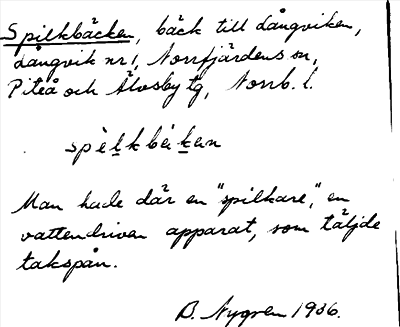 Spilkbäcken, bäck till Långviken,
Långvik nr 1, Norrfjärdens sn,
Piteå och Älvsby tg, Norrb. l.
spèlkbèkan
Man hade där en "spilkare", en
vattendriven apparat, som täljde
takspån.
B. Nygren 1936.